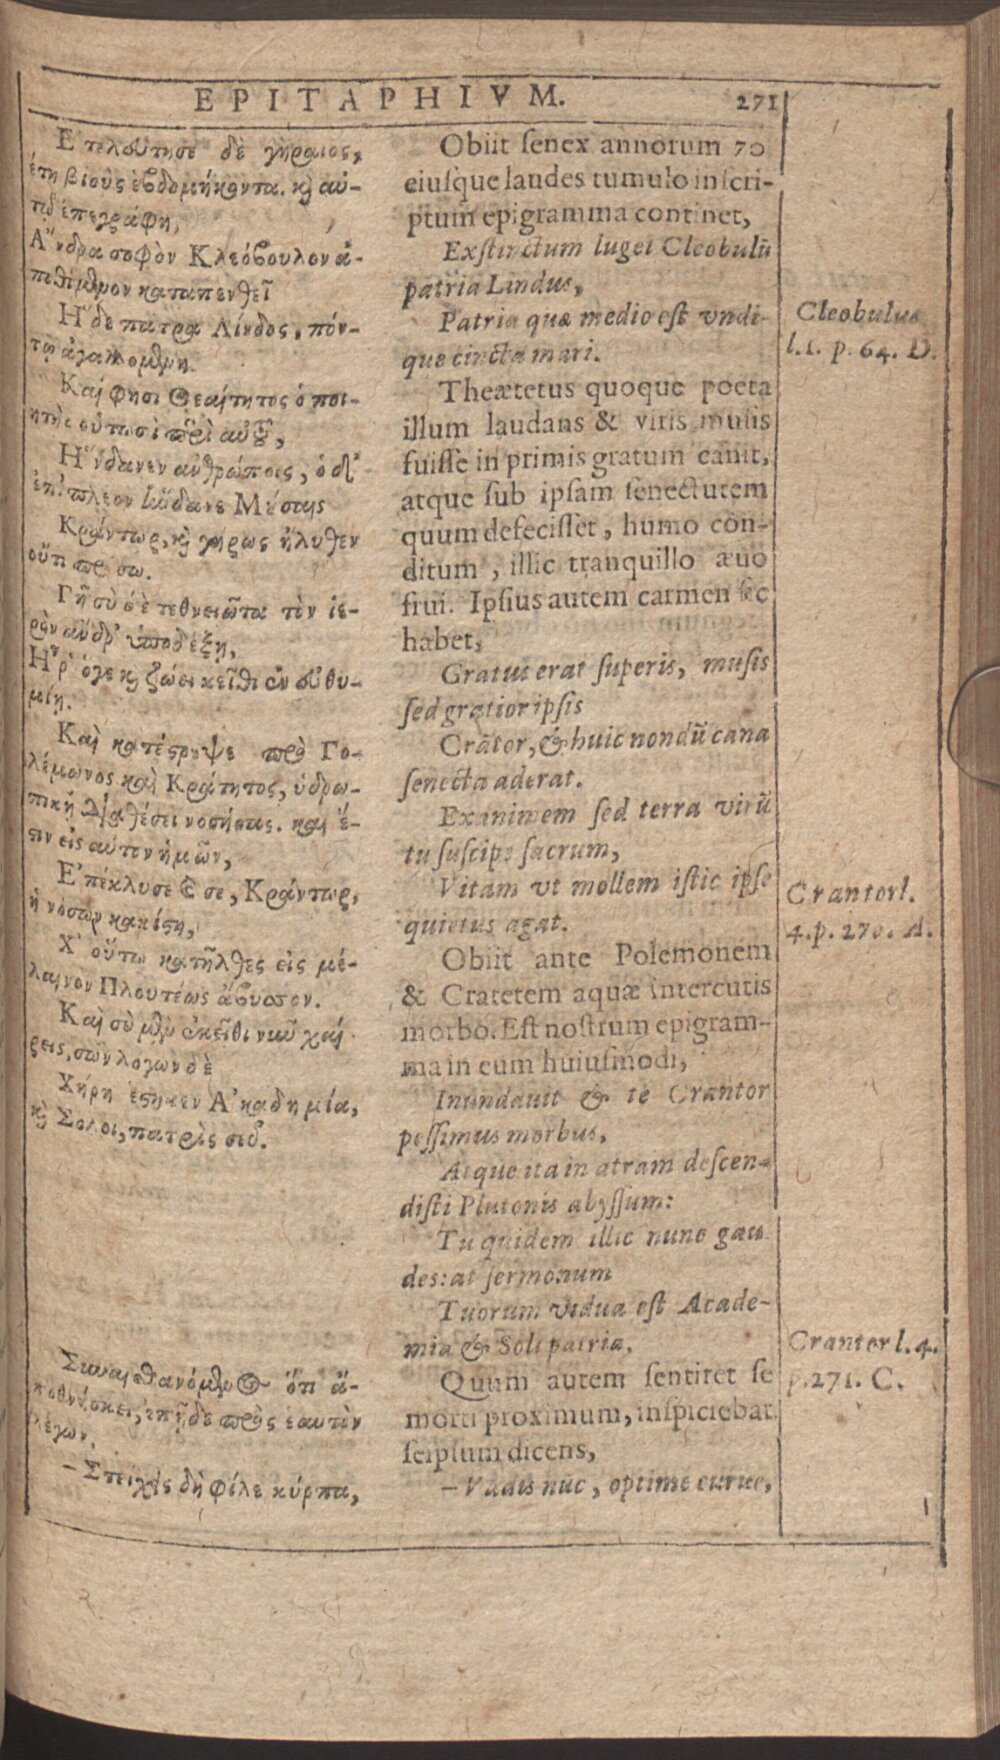 EPITAPHIVM. 271
Ετελεύτησε δὲ γηραιὸς,
ἔτη βιοὺς ἑβδομήκοντα. καὶ αὐ-
τῷ ἐπεγράφη,
Ἄνδρα σοφὸν Κλεόβουλον ἀ-
ποφθίμενον καταπενθεῖ
Ἥδε πατρα Λίνδος, πόν-
τῳ ἀγαλλομένη.
Καί φησι Θεαίτητος ὁ ποι-
ητὴς οὑτωσὶ περὶ αὐτοῦ,
Ἥνδανεν ἀνθρώποις, ὁ δ'
ἐπὶ πλέον ἥνδανε Μούσαις
Κράντωρ, καὶ γήρως ἤλυθεν
οὔτι πρόσω.
Γῆ σὺ δὲ τεθνειῶτα τὸν ἱε-
ρὸν ἄνδρ' ὑποδέξῃ,
Ἦ ῥ' ὅγε καὶ ζώει κεῖθι ἐν εὐθυ-
μίῃ.
Καὶ κατέστρεψε πρὸ Πο-
λέμωνος καὶ Κράτητος, ὑδρω-
πικῇ διαθέσει νοσήσας. καὶ ἔ-
στιν εἰς αὐτὸν ἡμῶν,
Ἐπέκλυσε καὶ σε, Κράντωρ,
ἡ νόσων κακίστη,
Χ' οὕτω κατῆλθες εἰς μέ-
λαινον Πλουτέως ἄβυσσον.
Καὶ σὺ μὲν ἐκεῖθι νῦν χαί-
ρεις, σῶν λόγων δὲ
Χήρη ἕστηκεν Ἀκαδημία,
καὶ Σόλοι, πατρίς σευ.
Συναισθανόμενος ὅτι ἀ-
ποθνήσκει, ἐπῇδε πρὸς ἑαυτὸν
λέγων,
– Στείχεις δὴ φίλε κύρπα,
Obiit ſenex annorum 70
eiuſque laudes tumulo inſcri-
ptum epigramma continet,
Exſtinctum luget Cleobulũ
patria Lindus,
Patria quæ medio eſt vndi-
que cincta mari.
Theætetus quoque poeta
illum laudans & viris muſis
fuiſſe in primis gratum canit,
atque ſub ipſam ſenectutem
quum defeciſſet, humo con-
ditum, illic tranquillo æuo
frui. Ipſius autem carmen ſic
habet,
Gratus erat ſuperis, muſis
ſed gratior ipſis
Crãtor, & huic nondũ cana
ſenecta aderat.
Exanimem ſed terra virũ
tu ſuſcipe ſacrum,
Vitam vt mollem iſtic ipſe
quietus agat.
Obiit ante Polemonem
& Cratetem aquæ intercutis
morbo. Eſt noſtrum epigram-
ma in eum huiuſmodi,
Inundauit & te Crantor
peſſimus morbus,
Atque ita in atram deſcen-
diſti Plutonis abyſſum:
Tu quidem illic nunc gau
des: at ſermonum
Tuorum vidua eſt Acade-
mia & Soli patria.
Quum autem ſentiret ſe
morti proximum, inſpiciebat
ſeipſum dicens,
– Vadis nũc, optime curue,
Cleobulus
l.1. p. 64. D.
Crantor l.
4. p. 270. A.
Cranter l. 4.
p. 271. C.